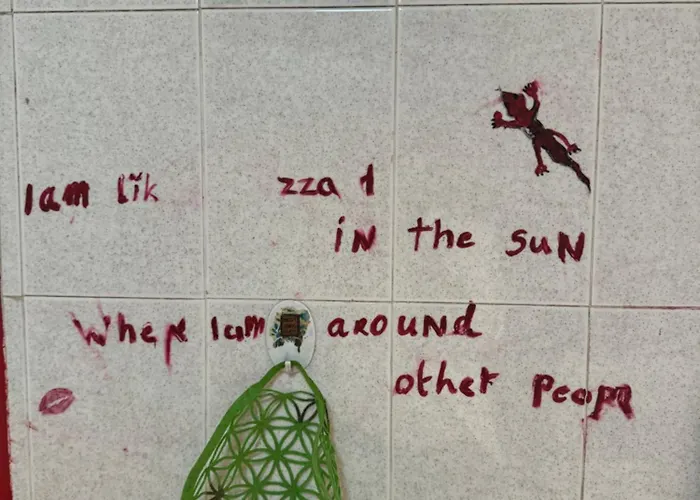 Iam lik zza d
iN the suN
When Iam aroUNd
other